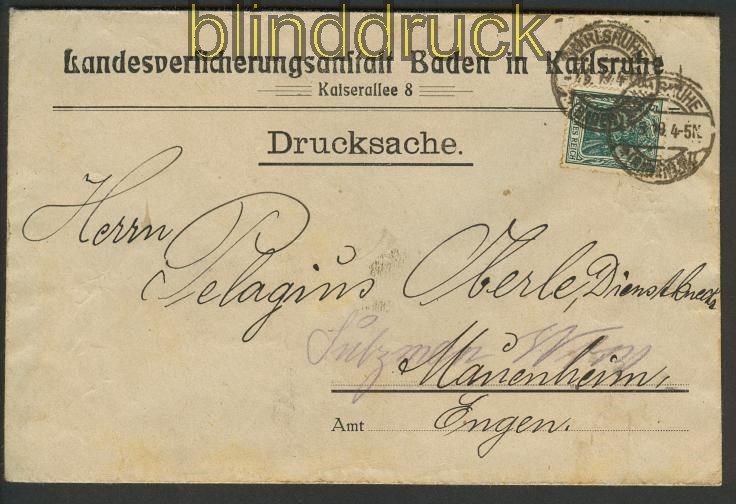 blinddruck
Landesversicherungsanstalt Baden in Karlsruhe
Kaiserallee 8
Drucksache.
KARLSRUHE
4-5N.
Herrn
Pelagius Oberle, Dienstknecht
Mauenheim,
Amt Engen.